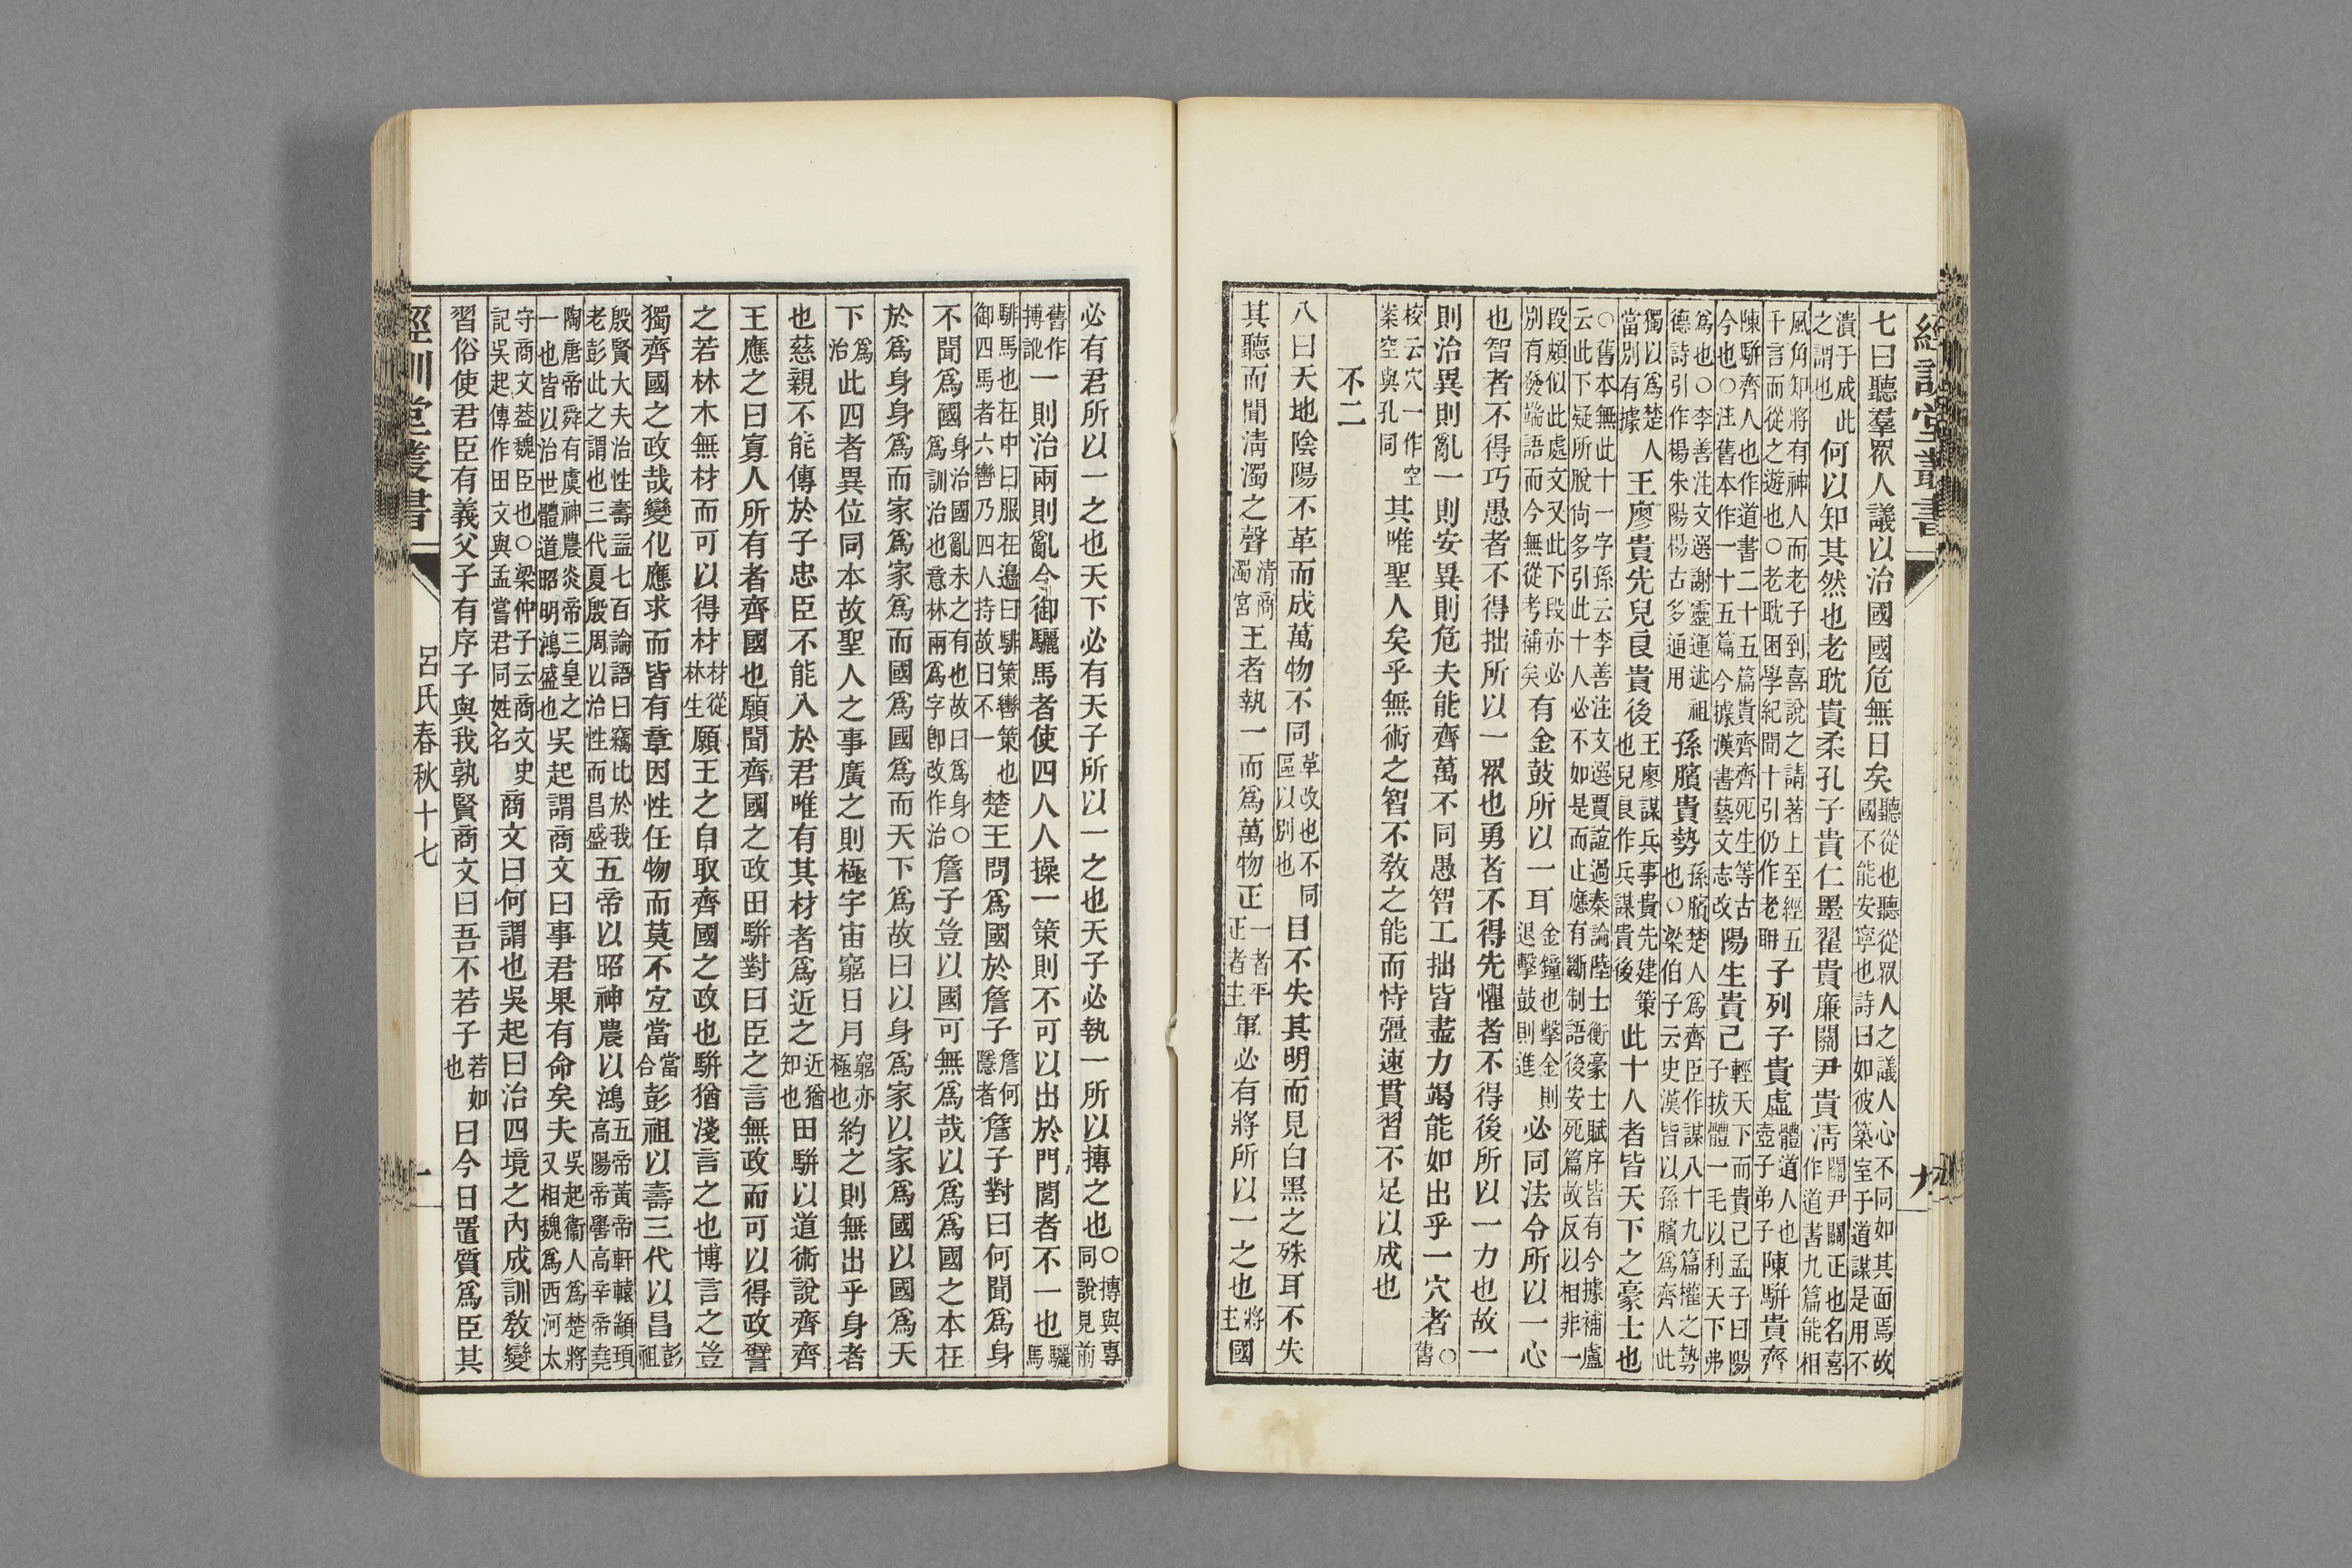 經訓堂叢書 九
七曰聽羣眾人議以治國國危無日矣聽從也聽從眾人之議人心不同如其面焉故國不能安寧也詩曰如彼築室于道謀是用不
潰于成此之謂也何以知其然也老耽貴柔孔子貴仁墨翟貴廉關尹貴淸關尹關正也名喜作道書九篇能相
風角知將有神人而老子到喜說之請著上至經五千言而從之遊也○老耽困學紀聞十引仍作老聃子列子貴虛體道人也壺子弟子陳駢貴齊
陳駢齊人也作道書二十五篇貴齊齊死生等古今也○注舊本作一十五篇今據漢書藝文志改陽生貴己輕天下而貴己孟子曰陽子拔體一毛以利天下弗
爲也○李善注文選謝靈運述祖德詩引作楊朱陽楊古多通用孫臏貴勢孫臏楚人爲齊臣作謀八十九篇權之勢也○梁伯子云史漢皆以孫臏爲齊人此
獨以爲楚人當別有據王廖貴先兒良貴後王廖謀兵事貴先建策也兒良作兵謀貴後此十人者皆天下之豪士也
○舊本無此十一字孫云李善注文選賈誼過秦論陸士衡豪士賦序皆有今據補盧云此下疑所脫尙多引此十人必不如是而止應有斷制語後安死篇故反以相非一
段頗似此處文又此下段亦必別有發端語而今無從考補矣有金鼓所以一耳金鐘也擊金則退擊鼓則進必同法令所以一心
也智者不得巧愚者不得拙所以一眾也勇者不得先懼者不得後所以一力也故一
則治異則亂一則安異則危夫能齊萬不同愚智工拙皆盡力竭能如出乎一穴者○舊
校云穴一作空案空與孔同其唯聖人矣乎無術之智不敎之能而恃彊速貫習不足以成也
不二
八曰天地陰陽不革而成萬物不同革改也不同區以別也目不失其明而見白黑之殊耳不失
其聽而聞淸濁之聲清商濁宮王者執一而爲萬物正一者平正者主軍必有將所以一之也將主國
必有君所以一之也天下必有天子所以一之也天子必執一所以摶之也○摶與專同說見前
舊作搏訛一則治兩則亂今御驪馬者使四人人操一策則不可以出於門閭者不一也驪馬
騑馬也在中曰服在邊曰騑策轡策也御四馬者六轡乃四人持故曰不一楚王問爲國於詹子詹何隱者詹子對曰何聞爲身
不聞爲國身治國亂未之有也故曰爲身○爲訓治也意林兩爲字卽改作治詹子豈以國可無爲哉以爲爲國之本在
於爲身身爲而家爲家爲而國爲國爲而天下爲故曰以身爲家以家爲國以國爲天
下爲治此四者異位同本故聖人之事廣之則極宇宙窮日月窮亦極也約之則無出乎身者
也慈親不能傳於子忠臣不能入於君唯有其材者爲近之近猶知也田駢以道術說齊齊
王應之曰寡人所有者齊國也願聞齊國之政田駢對曰臣之言無政而可以得政譬
之若林木無材而可以得材材從林生願王之自取齊國之政也駢猶淺言之也博言之豈
獨齊國之政哉變化應求而皆有章因性任物而莫不宜當當合彭祖以壽三代以昌彭祖
殷賢大夫治性壽益七百論語曰竊比於我老彭此之謂也三代夏殷周以治性而昌盛五帝以昭神農以鴻五帝黃帝軒轅顓頊高陽帝嚳高辛帝堯
陶唐帝舜有虞神農炎帝三皇之一也皆以治世體道昭明鴻盛也吳起謂商文曰事君果有命矣夫吳起衞人爲楚將又相魏爲西河太
守商文蓋魏臣也○梁仲子云商文史記吳起傳作田文與孟嘗君同姓名商文曰何謂也吳起曰治四境之內成訓敎變
習俗使君臣有義父子有序子與我孰賢商文曰吾不若子若如也曰今日置質爲臣其
經訓堂叢書 呂氏春秋十七